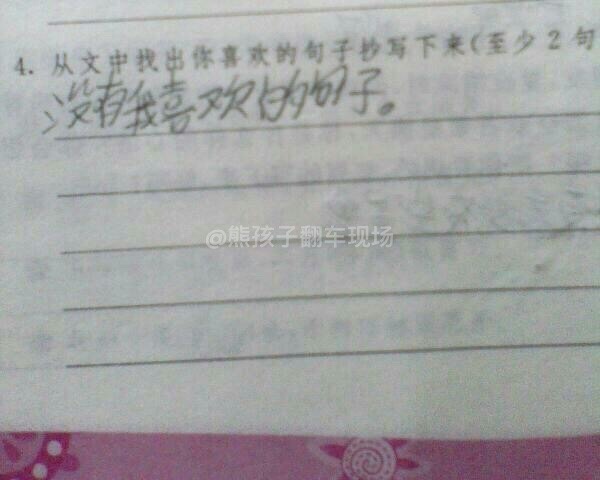 4. 从文中找出你喜欢的句子抄写下来(至少 2 句
没有我喜欢的句子。
@熊孩子翻车现场